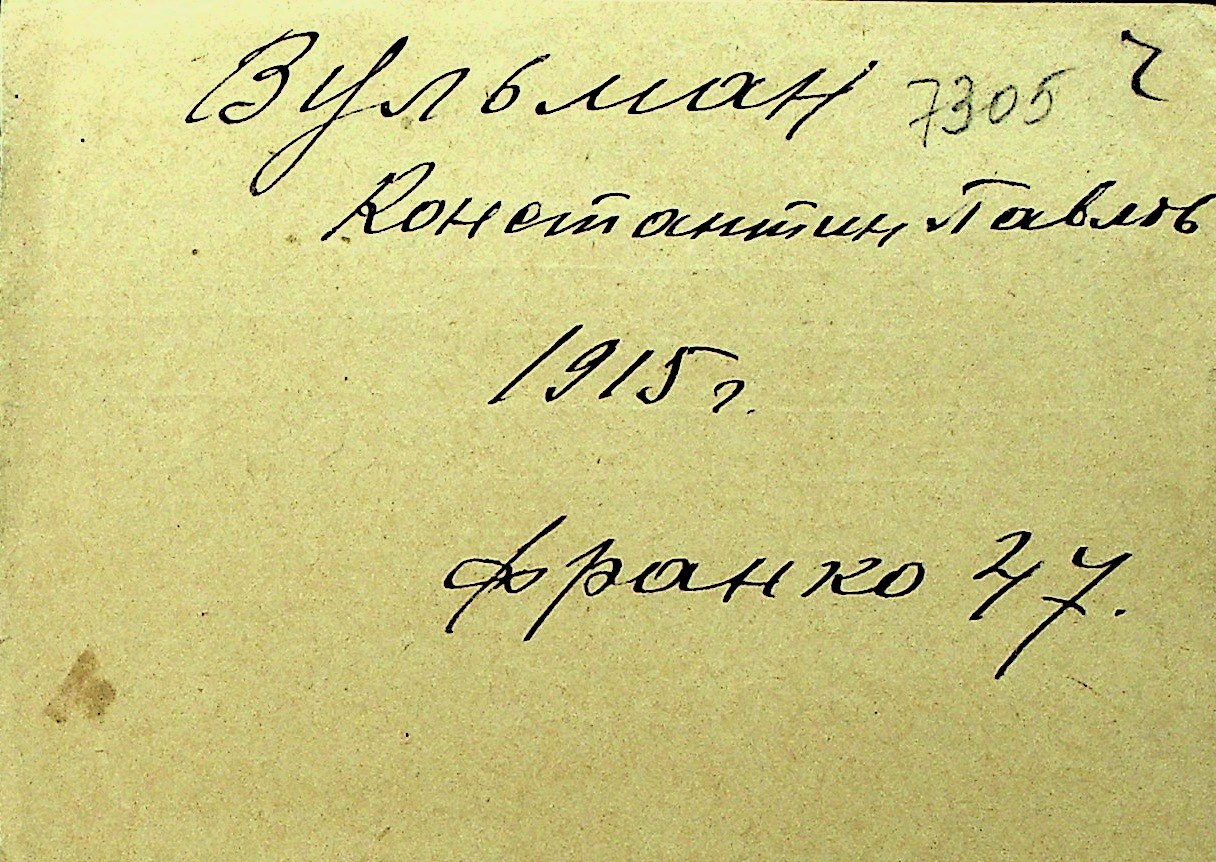 Вульман 7305 ч
Константин Павлов
1915 г.
Франко 47.